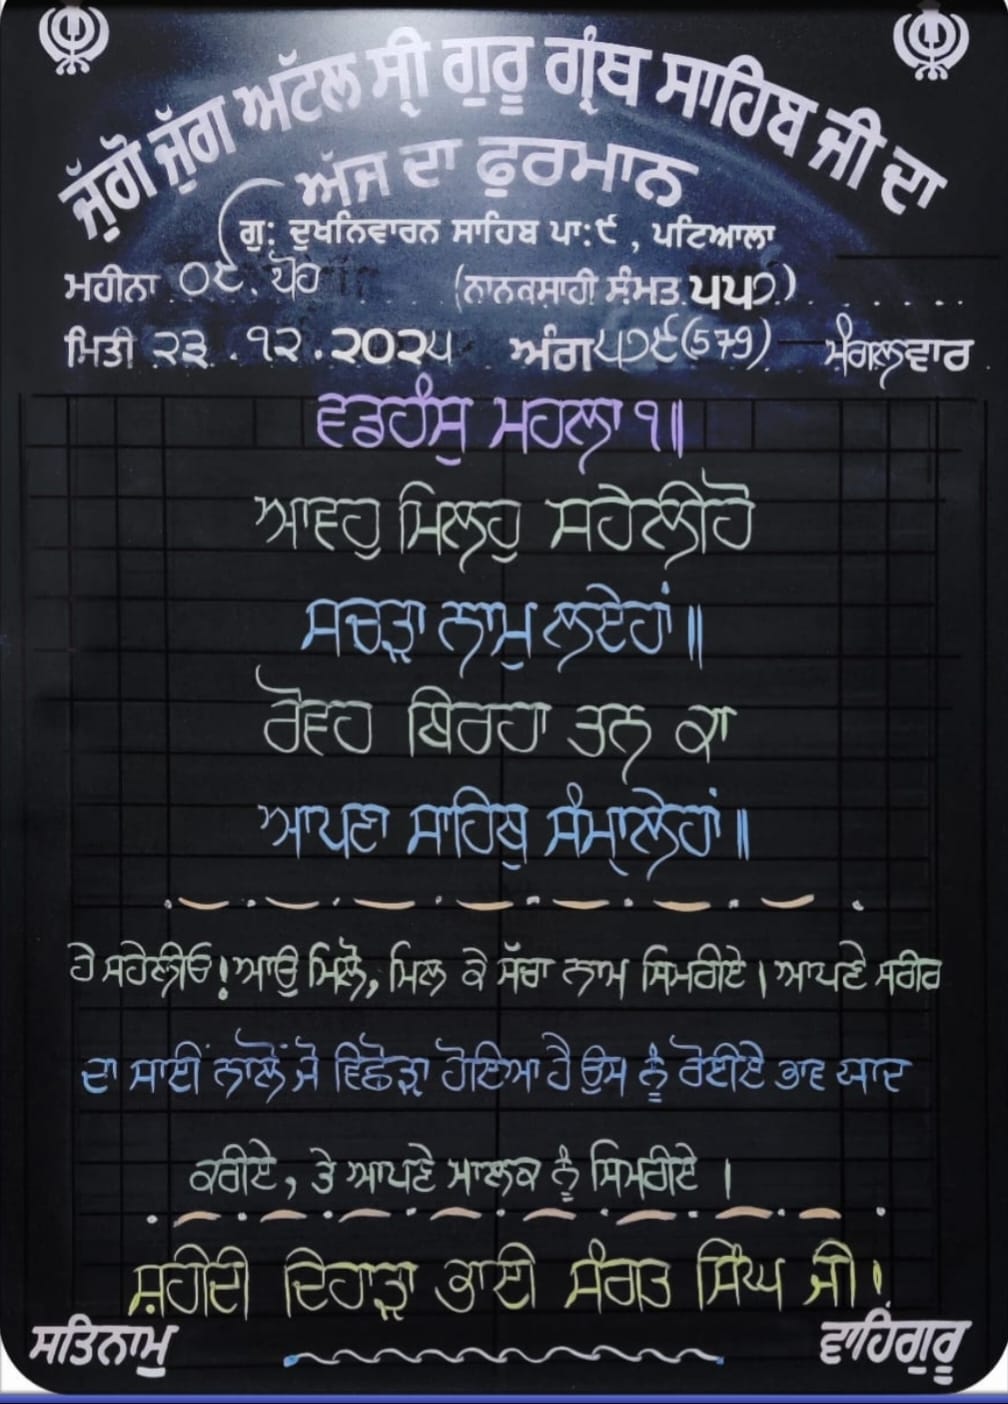 ਜੁੱਗੋ ਜੁੱਗ ਅੱਟਲ ਸ੍ਰੀ ਗੁਰੂ ਗ੍ਰੰਥ ਸਾਹਿਬ ਜੀ ਦਾ
ਅੱਜ ਦਾ ਫੁਰਮਾਨ
ਗੁ: ਦੁਖਨਿਵਾਰਨ ਸਾਹਿਬ ਪਾ:੯ , ਪਟਿਆਲਾ
ਮਹੀਨਾ ੦੯. ਪੋਹ (ਨਾਨਕਸਾਹੀ ਸੰਮਤ ੫੫੭)
ਮਿਤੀ ੨੩.੧੨.੨੦੨੫ ਅੰਗ ੫੭੯(579) ਮੰਗਲਵਾਰ
ਵਡਹੰਸੁ ਮਹਲਾ ੧॥
ਆਵਹੁ ਮਿਲਹੁ ਸਹੇਲੀਹੋ
ਸਚੜਾ ਨਾਮੁ ਲਏਹਾਂ॥
ਰੋਵਹ ਬਿਰਹਾ ਤਨ ਕਾ
ਆਪਣਾ ਸਾਹਿਬੁ ਸੰਮ੍ਹਾਲੇਹਾਂ॥
ਹੇ ਸਹੇਲੀਓ! ਆਉ ਮਿਲੋ, ਮਿਲ ਕੇ ਸੱਚਾ ਨਾਮ ਸਿਮਰੀਏ। ਆਪਣੇ ਸਰੀਰ
ਦਾ ਸਾਈਂ ਨਾਲੋਂ ਜੋ ਵਿਛੋੜਾ ਹੋਇਆ ਹੈ ਉਸ ਨੂੰ ਰੋਈਏ ਭਾਵ ਯਾਦ
ਕਰੀਏ, ਤੇ ਆਪਣੇ ਮਾਲਕ ਨੂੰ ਸਿਮਰੀਏ।
ਸ਼ਹੀਦੀ ਦਿਹਾੜਾ ਭਾਈ ਸੰਗਤ ਸਿੰਘ ਜੀ।
ਸਤਿਨਾਮੁ ਵਾਹਿਗੁਰੂ